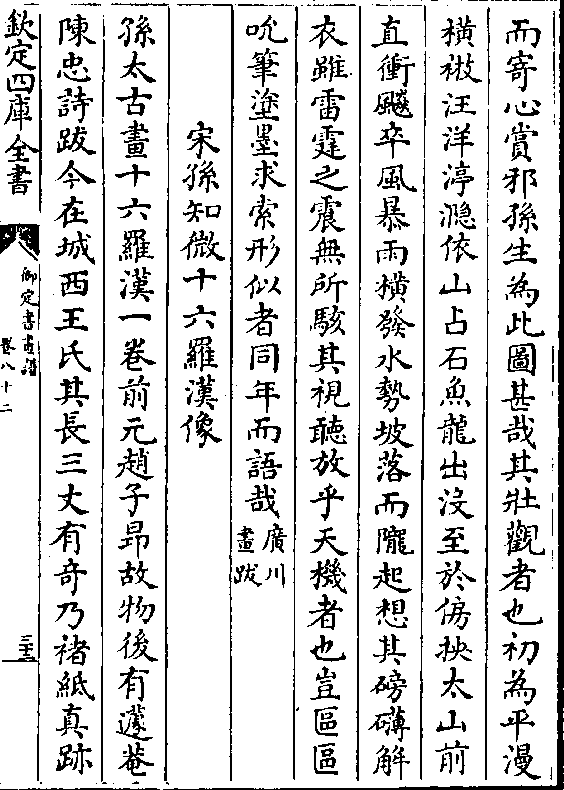 而寄心賞邪孫生為此圖甚哉其壯觀者也初為平漫
横袚汪洋渟㶏依山占石魚龍出沒至於傍挾太山前
直衝飈卒風暴雨横發水勢坡落而隴起想其磅礴解
衣雖雷霆之震無所駭其視聽放乎天機者也豈區區
吮筆塗墨求索形似者同年而語哉廣川畫跋
宋孫知微十六羅漢像
孫太古畫十六羅漢一卷前元趙子昻故物後有蘧菴
陳忠詩跋今在城西王氏其長三丈有奇乃褚紙真跡
欽定四庫全書
御定書畫譜
卷八十二
三十三